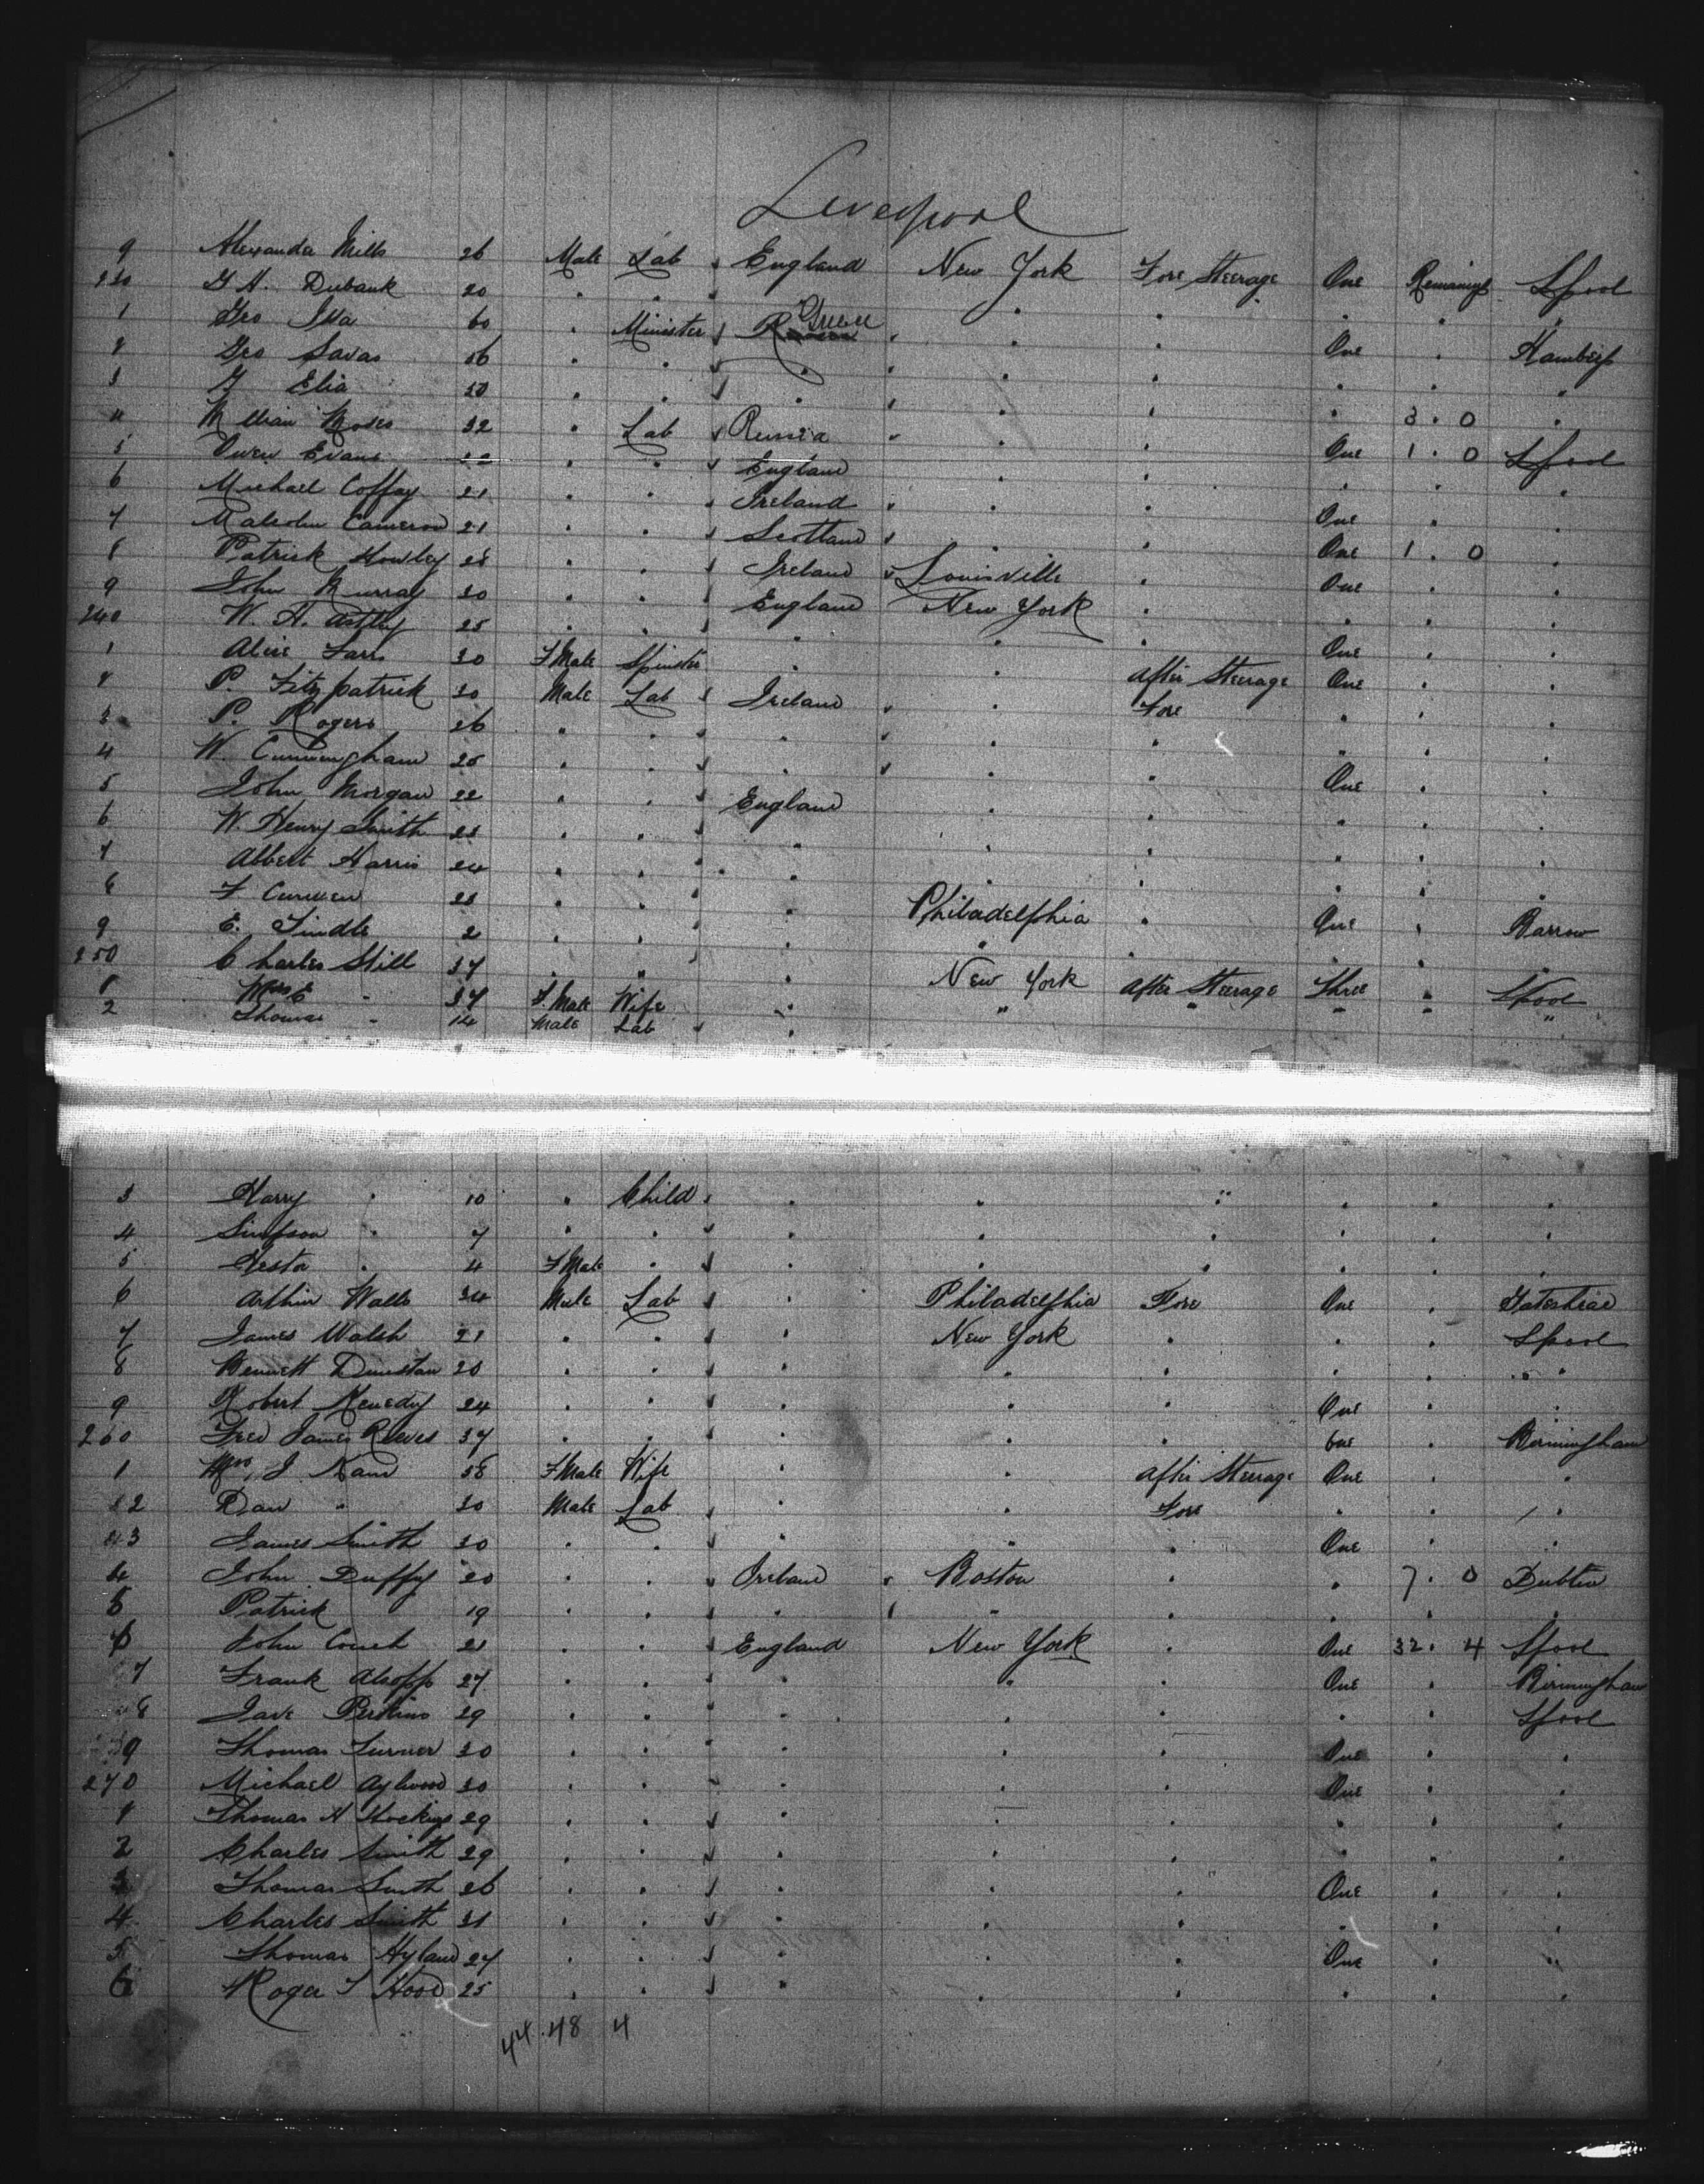 Liverpool
9 Alexanda Mills 26 Male Lab England New York Fore Steerage One Remaining Lpool
230 G H. Dubank 20 " " " " " " "
1 Geo Isa 60 " Minister Greece " " " One " Hamburg
2 Geo Savas 56 " " " " " " " "
3 G Elia 50 " " " " " " 3 . 0 "
4 Moses 32 " Lab Russia " " " One 1 . 0 Lpool
5 Owen Evans 22 " " England " " " " "
6 Michael Coffay 21 " " Ireland " " One " "
7 Malcolm Cameron 21 " " Scotland " " One 1 . 0 "
8 Patrick Howley 28 " " Ireland Louisville " One "
9 John Murray 30 " " England New York " " " "
240 W. H. Astley 25 " " " " " One " "
1 Alice Farr 30 F Male Spinster " " After Steerage One " "
2 P. Fitzpatrick 30 Male Lab Ireland " Fore " " "
3 P. Rogers 26 " " " " " " " "
4 W. Cunningham 25 " " " " " One " "
5 John Morgan 22 " " England " " " " "
6 W. Henry Smith 23 " " " " " " " "
7 Albert Harris 24 " " " " " " " "
8 F Curwen 23 " " " Philadelphia " One " Barrow
9 E. Tindle 2 " " " " " " " "
250 Charles Still 37 " " " New York After Steerage Three " Lpool
1 Mrs E " 37 F. Male Wife " " " " " "
2 Thomas " 14 Male Lab "
3 Harry " 10 " Child " " " " " "
4 Simpson " 7 " " " " " " " "
5 Hesta " 4 F Male " " " " " " "
6 Arthur Walls 34 Male Lab " Philadelphia Fore One " Gateshead
7 James Walsh 21 " " " New York " " " Lpool
8 Bennett Dunstan 20 " " " " " " " "
9 Robert Kenedy 24 " " " " " One " "
260 Fred James Reeves 37 " " " " " One " Birmingham
1 Mrs J Nam 58 F Male Wife " " After Steerage One " "
2 Dan " 30 Male Lab " " Fore " " "
3 James Smith 30 " " " " " One " "
4 John Duffy 20 " " Ireland Boston " " 7 . 0 Dublin
5 Patrick 19 " " " " " " " "
6 John Couch 21 " " England New York " One 32 . 4 Lpool
7 Frank Alsopp 27 " " " " " One " Birmingham
8 Jave Perkins 29 " " " " " " " Lpool
9 Thomas Turner 30 " " " " " One " "
270 Michael Aylwood 30 " " " " " One " "
1 Thomas H Hockings 29 " " " " " " " "
2 Charles Smith 29 " " " " " " " "
3 Thomas Smith 26 " " " " " One " "
4 Charles Smith 31 " " " " " " " "
5 Thomas Hyland 27 " " " " " One " "
6 Roger T Hood 25 " " " " " " " "
44 . 48 4